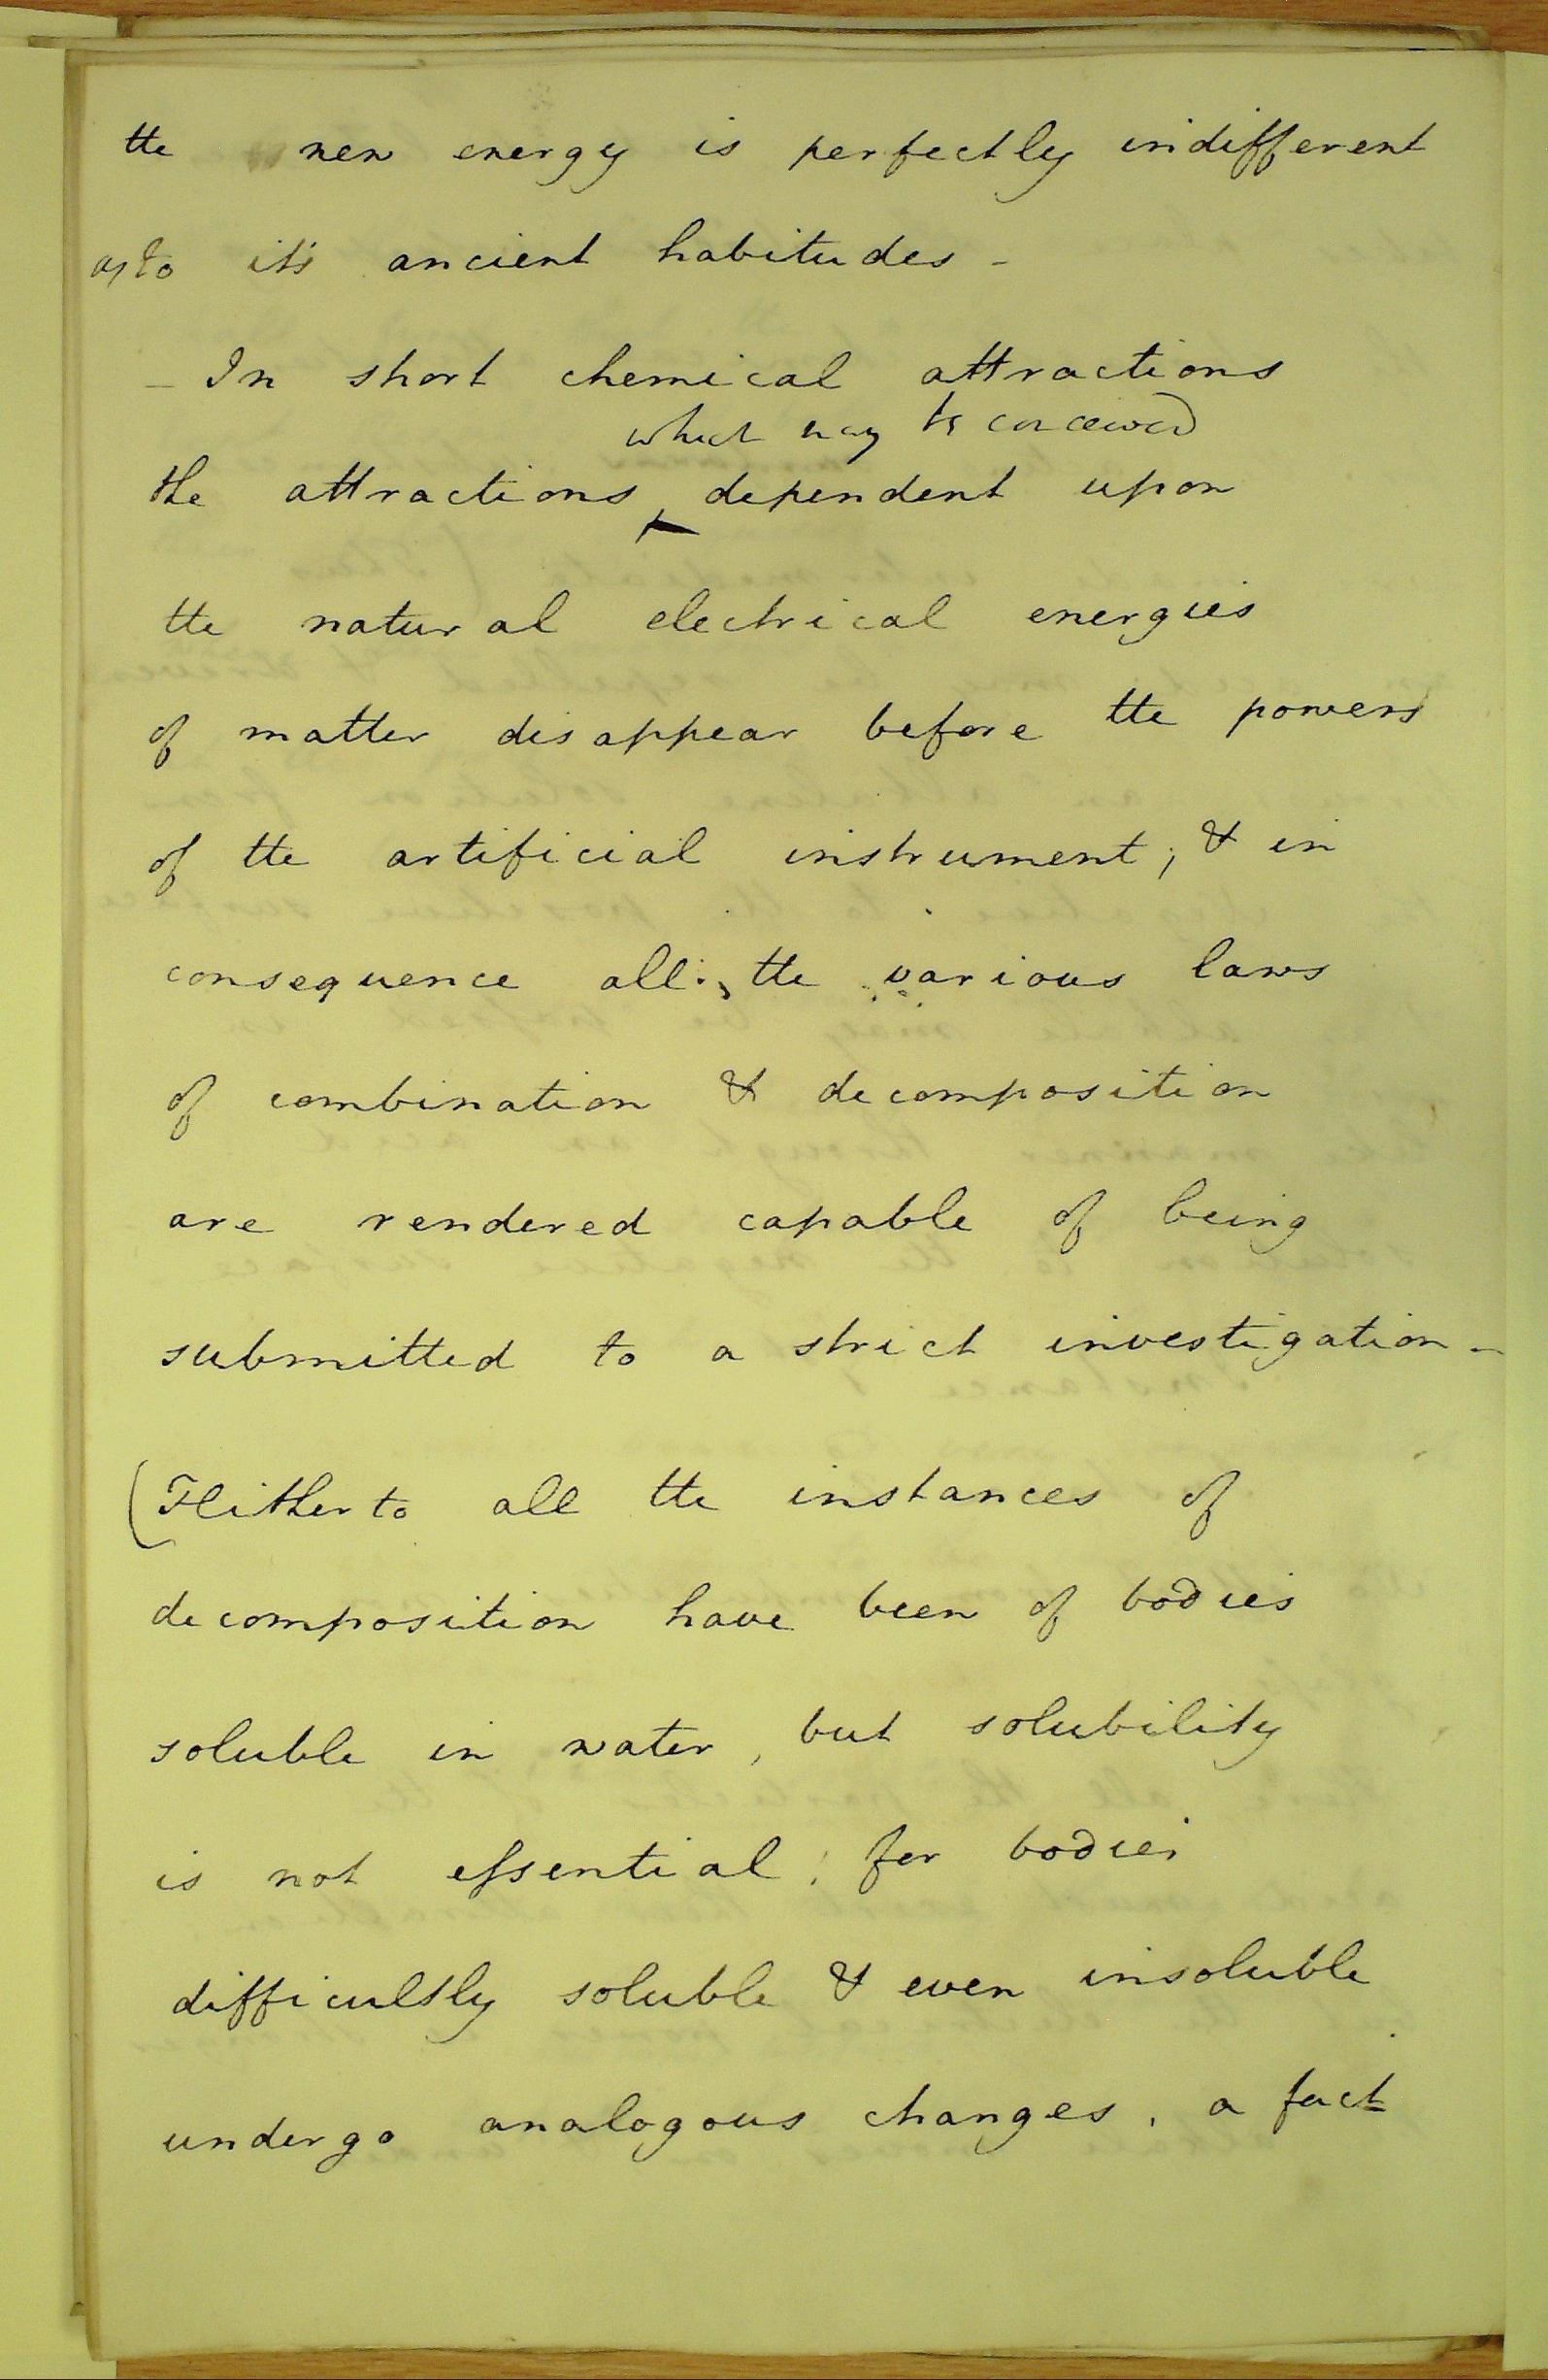 the new energy is perfectly indifferent
as to it's ancient habitudes -
- In short chemical attractions
which may be conceived
the attractions, dependent upon
the natural electrical energies
of matter disappear before the powers
of the artificial instrument; & in
consequence all the various laws
of combination & decomposition
are rendered capable of being
submitted to a strict investigation -
(Hitherto all the instances of
decomposition have been of bodies
soluble in water, but solubility
is not essential; for bodies
difficultly soluble & even insoluble
undergo analogous changes, a fact